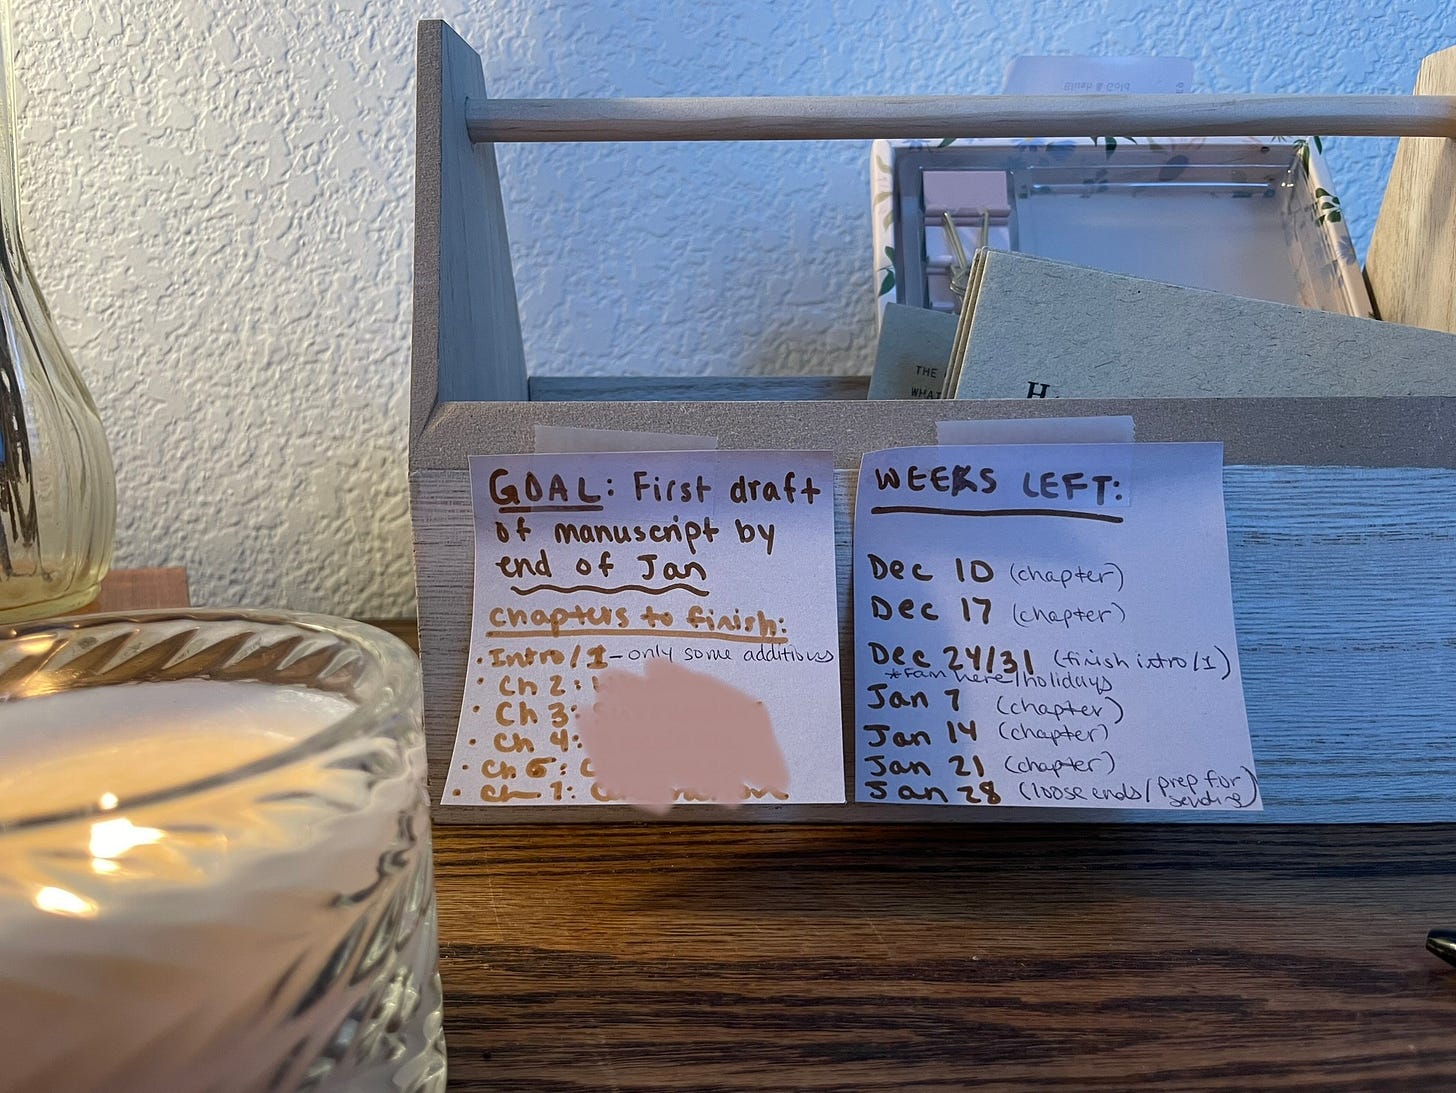 Blush & Gold
THE
WHAT
H
GOAL: First draft
of manuscript by
end of Jan
chapters to finish:
• Intro/1 - only some additions
• Ch 2:
• Ch 3:
• Ch 4:
• Ch 5: C
• Ch 7:
WEEKS LEFT:
Dec 10 (chapter)
Dec 17 (chapter)
Dec 24/31 (finish intro/1)
*fam here/holidays
Jan 7 (chapter)
Jan 14 (chapter)
Jan 21 (chapter)
Jan 28 (loose ends/prep for
sending)